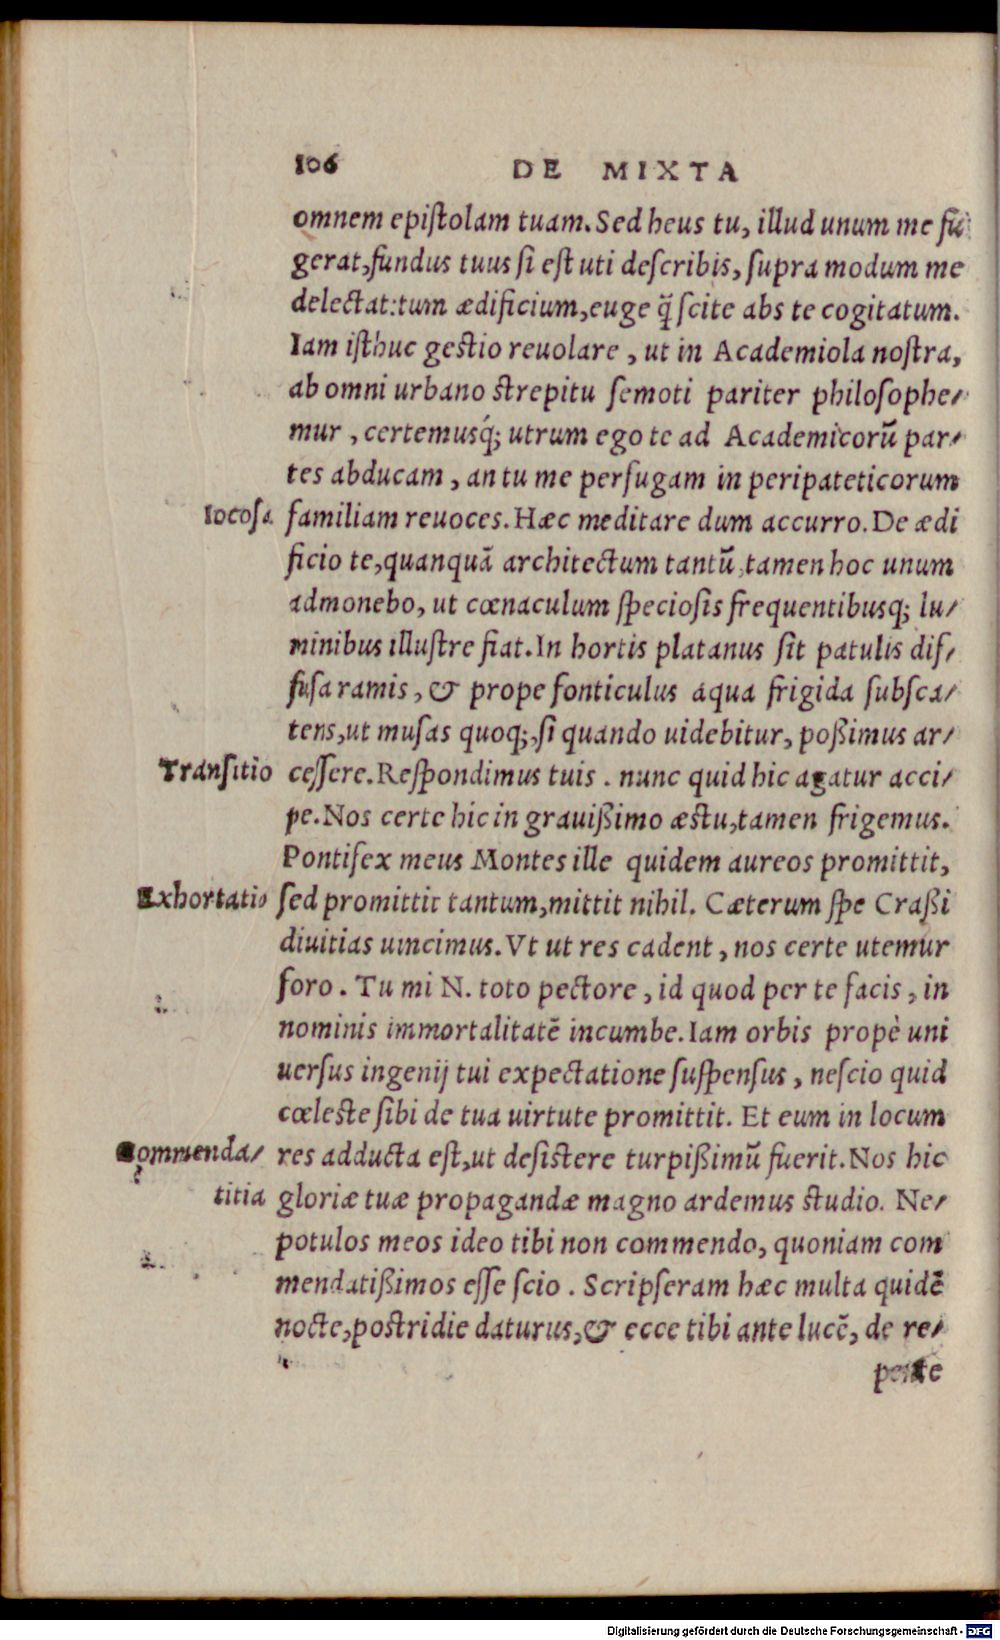 106 DE MIXTA
omnem epiſtolam tuam. Sed heus tu, illud unum me fu
gerat, fundus tuus ſi eſt uti deſcribis, ſupra modum me
delectat: tum ædificium, euge q̃ ſcite abs te cogitatum.
Iam iſthuc geſtio reuolare, ut in Academiola noſtra,
ab omni urbano ſtrepitu ſemoti pariter philoſophe/
mur, certemusq́; utrum ego te ad Academicorũ par/
tes abducam, an tu me perfugam in peripateticorum
Iocoſa familiam reuoces. Hæc meditare dum accurro. De ædi
ficio te, quanquã architectum tantũ, tamen hoc unum
admonebo, ut cœnaculum ſpecioſis frequentibusq; lu/
minibus illuſtre fiat. In hortis platanus ſit patulis dif/
fuſa ramis, & prope fonticulus aqua frigida ſubſca/
tens, ut muſas quoq;, ſi quando uidebitur, poßimus ar/
Tranſitio ceſſere. Reſpondimus tuis. nunc quid hic agatur acci/
pe. Nos certe hic in grauißimo æſtu, tamen frigemus.
Pontifex meus Montes ille quidem aureos promittit,
Exhortatio ſed promittit tantum, mittit nihil. Cæterum ſpe Craßi
diuitias uincimus. Vt ut res cadent, nos certe utemur
foro. Tu mi N. toto pectore, id quod per te facis, in
nominis immortalitatē incumbe. Iam orbis propè uni
uerſus ingenij tui expectatione ſuſpenſus, neſcio quid
cœleſte ſibi de tua uirtute promittit. Et eum in locum
Commenda/ res adducta eſt, ut deſiſtere turpißimũ fuerit. Nos hic
titia gloriæ tuæ propagandæ magno ardemus ſtudio. Ne/
potulos meos ideo tibi non commendo, quoniam com
mendatißimos eſſe ſcio. Scripſeram hæc multa quidē
nocte, poſtridie daturus, & ecce tibi ante lucē, de re/
pente
Digitalisierung gefördert durch die Deutsche Forschungsgemeinschaft - DFG